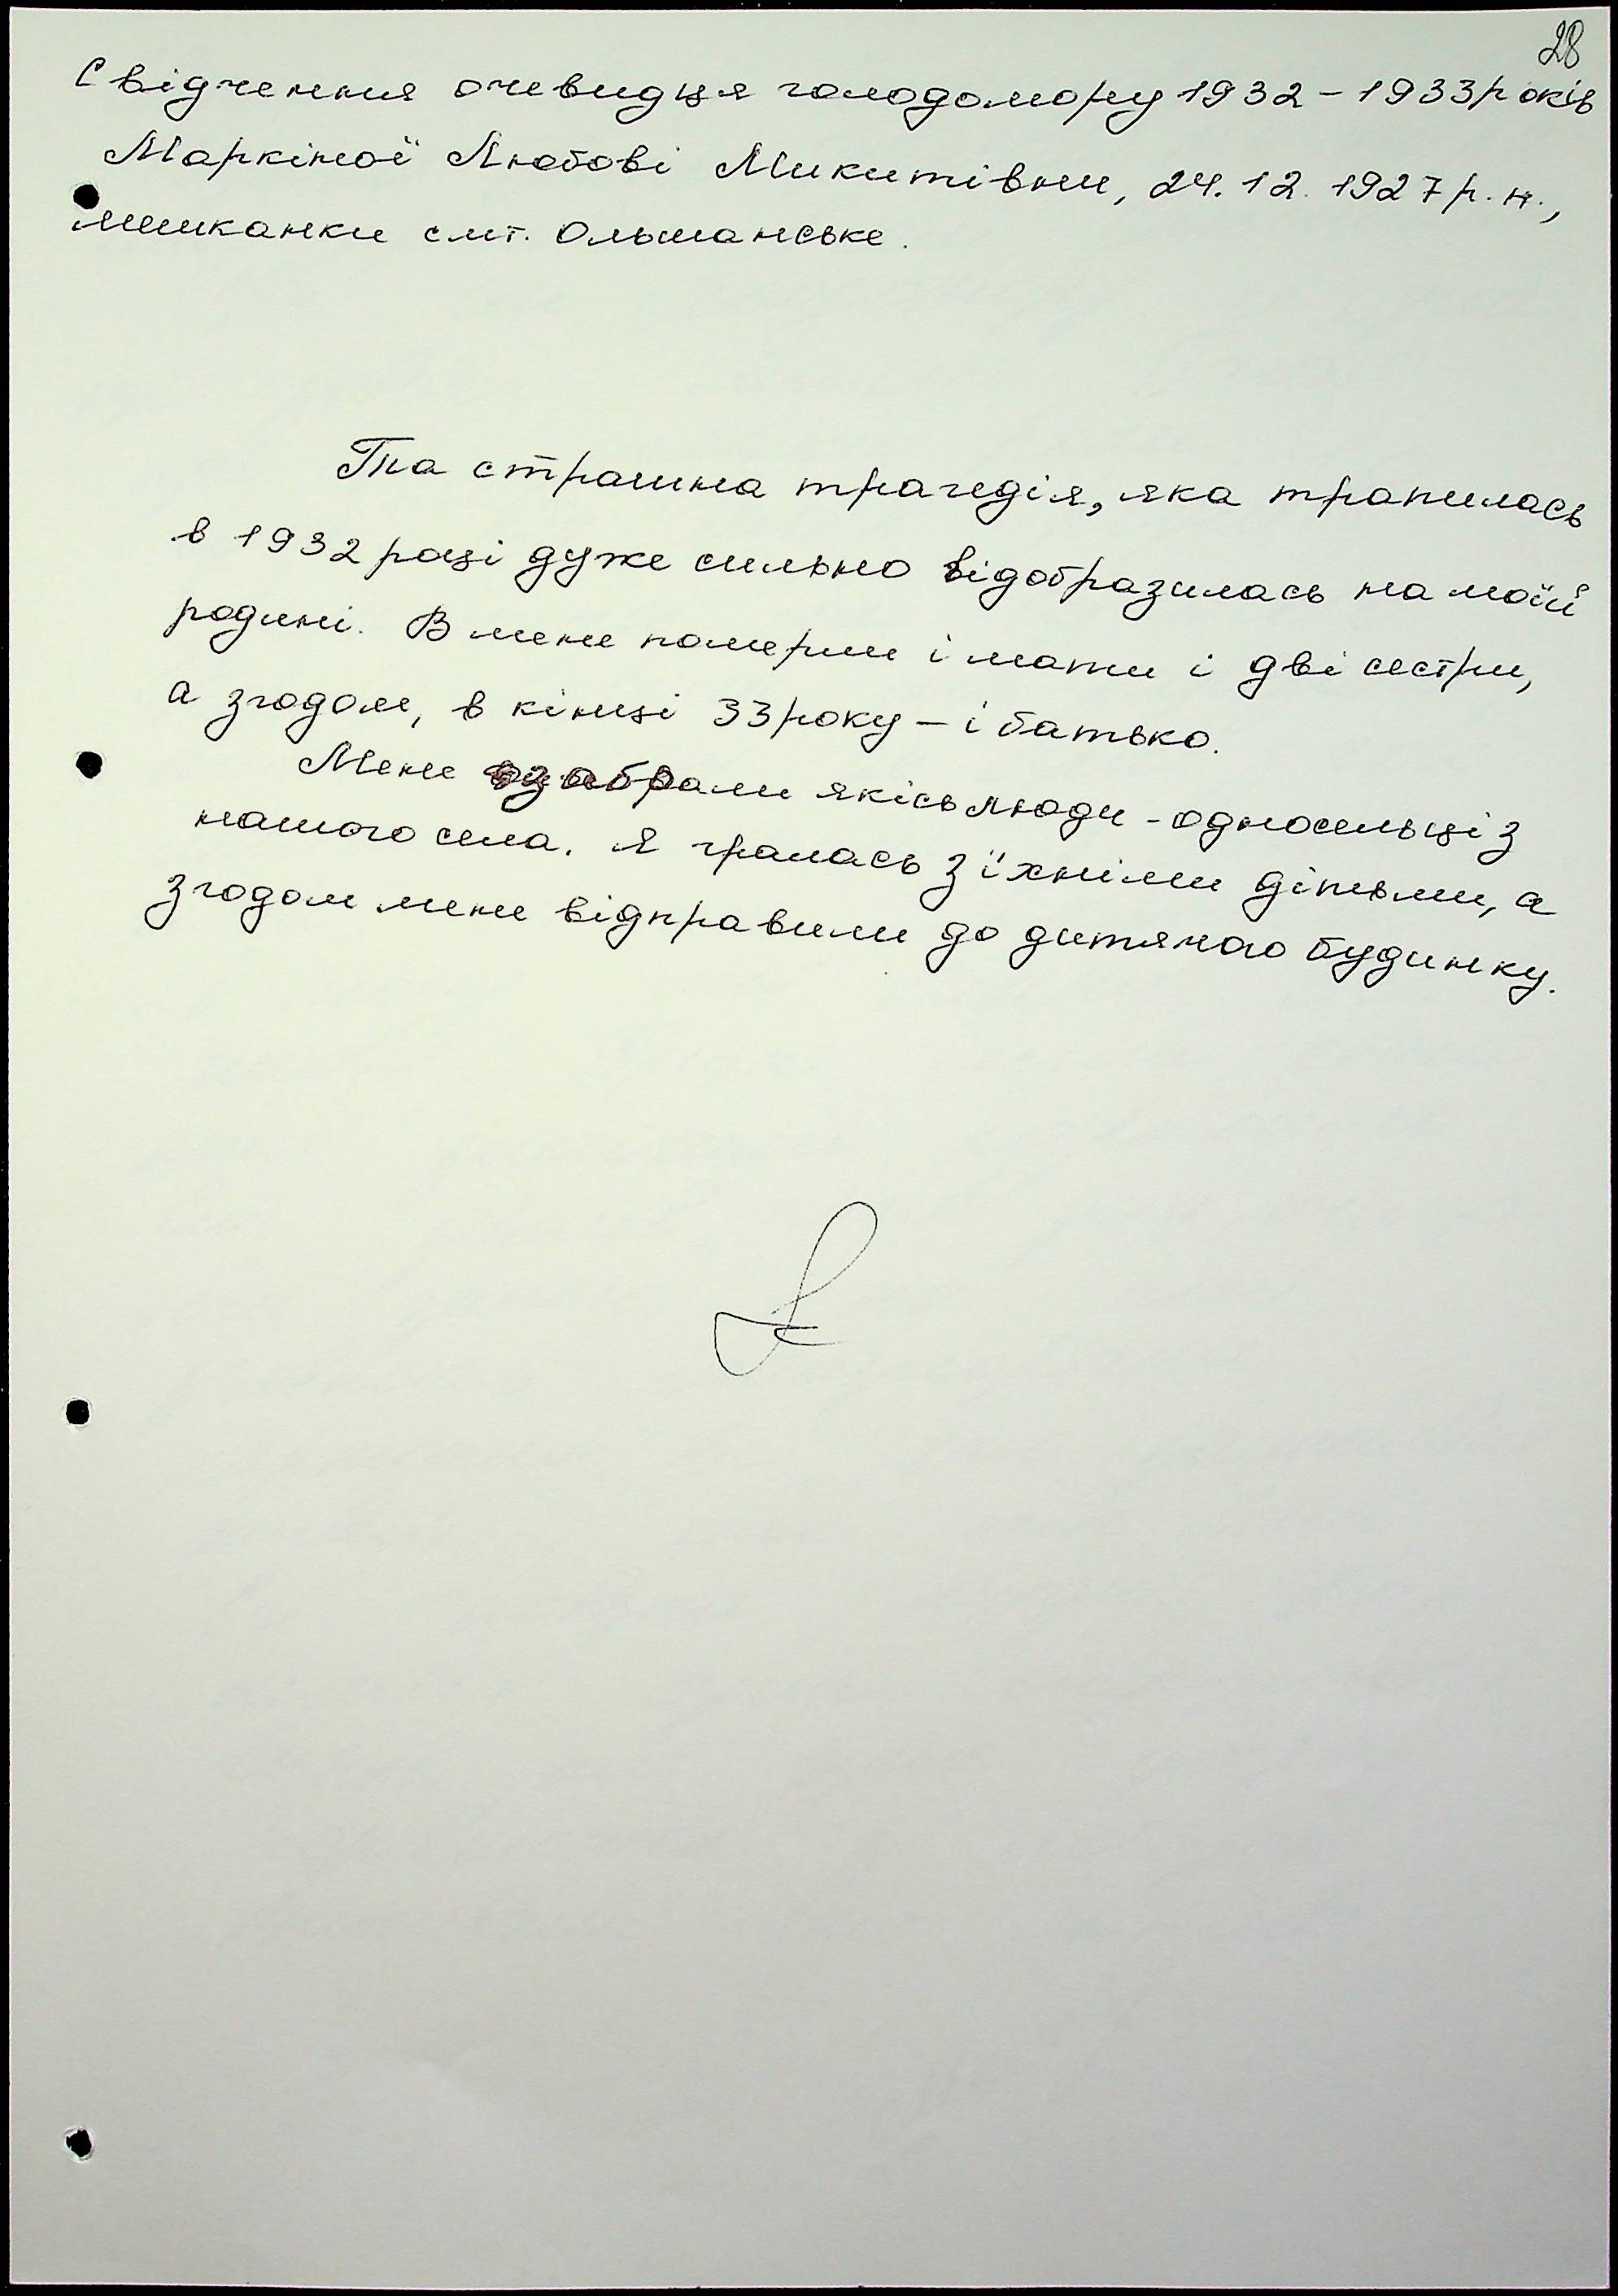 28
Свідчення очевидця голодомору 1932 - 1933 років
Маркіної Любові Микитівни, 24.12.1927 р.н.,
мешканки смт. Ольшанське.
Та страшна трагедія, яка трапилась
в 1932 році дуже сильно відобразилась на моїй
родині. В мене померли і мати і дві сестри,
а згодом, в кінці 33 року - і батько.
Мене забрали якісь люди - односельці з
нашого села. Я гралась з їхніми дітьми, а
згодом мене відправили до дитячого будинку.